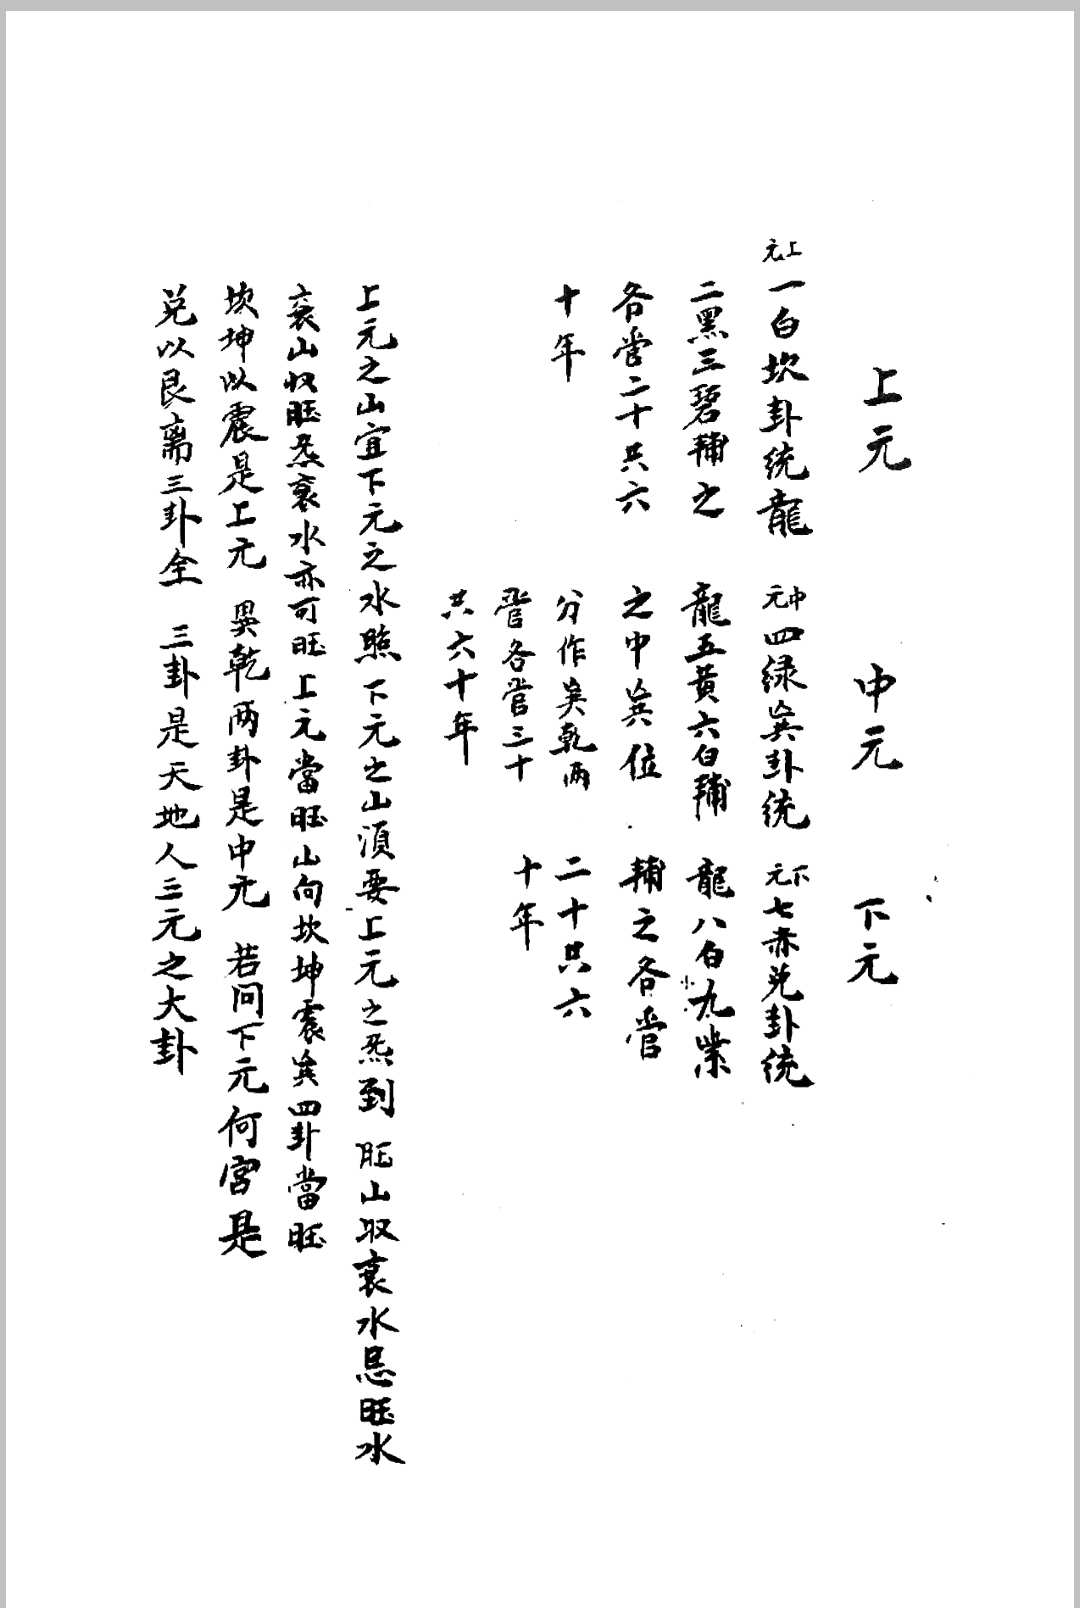 上元
中元
下元
上元一白坎卦统龍
二黑三碧輔之
各管二十共六
十年
中元四绿巽卦统
龍五黄六白輔
之中巽位
分作巽乾两
管各管三十
共六十年
下元七赤兑卦统
龍八白九紫
輔之各管
二十共六
十年
上元之山宜下元之水照 下元之山須要上元之炁到 旺山収衰水忌旺水
衰山収旺炁衰水亦可旺 上元當旺山向坎坤震巽四卦當旺
坎坤以震是上元 巽乾两卦是中元 若问下元何宮是
兑以艮离三卦全 三卦是天地人三元之大卦